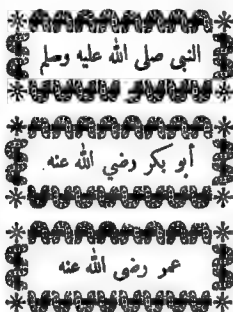 النبي صلى الله عليه وسلم
أبو بكر رضي الله عنه.
عمر رضي الله عنه